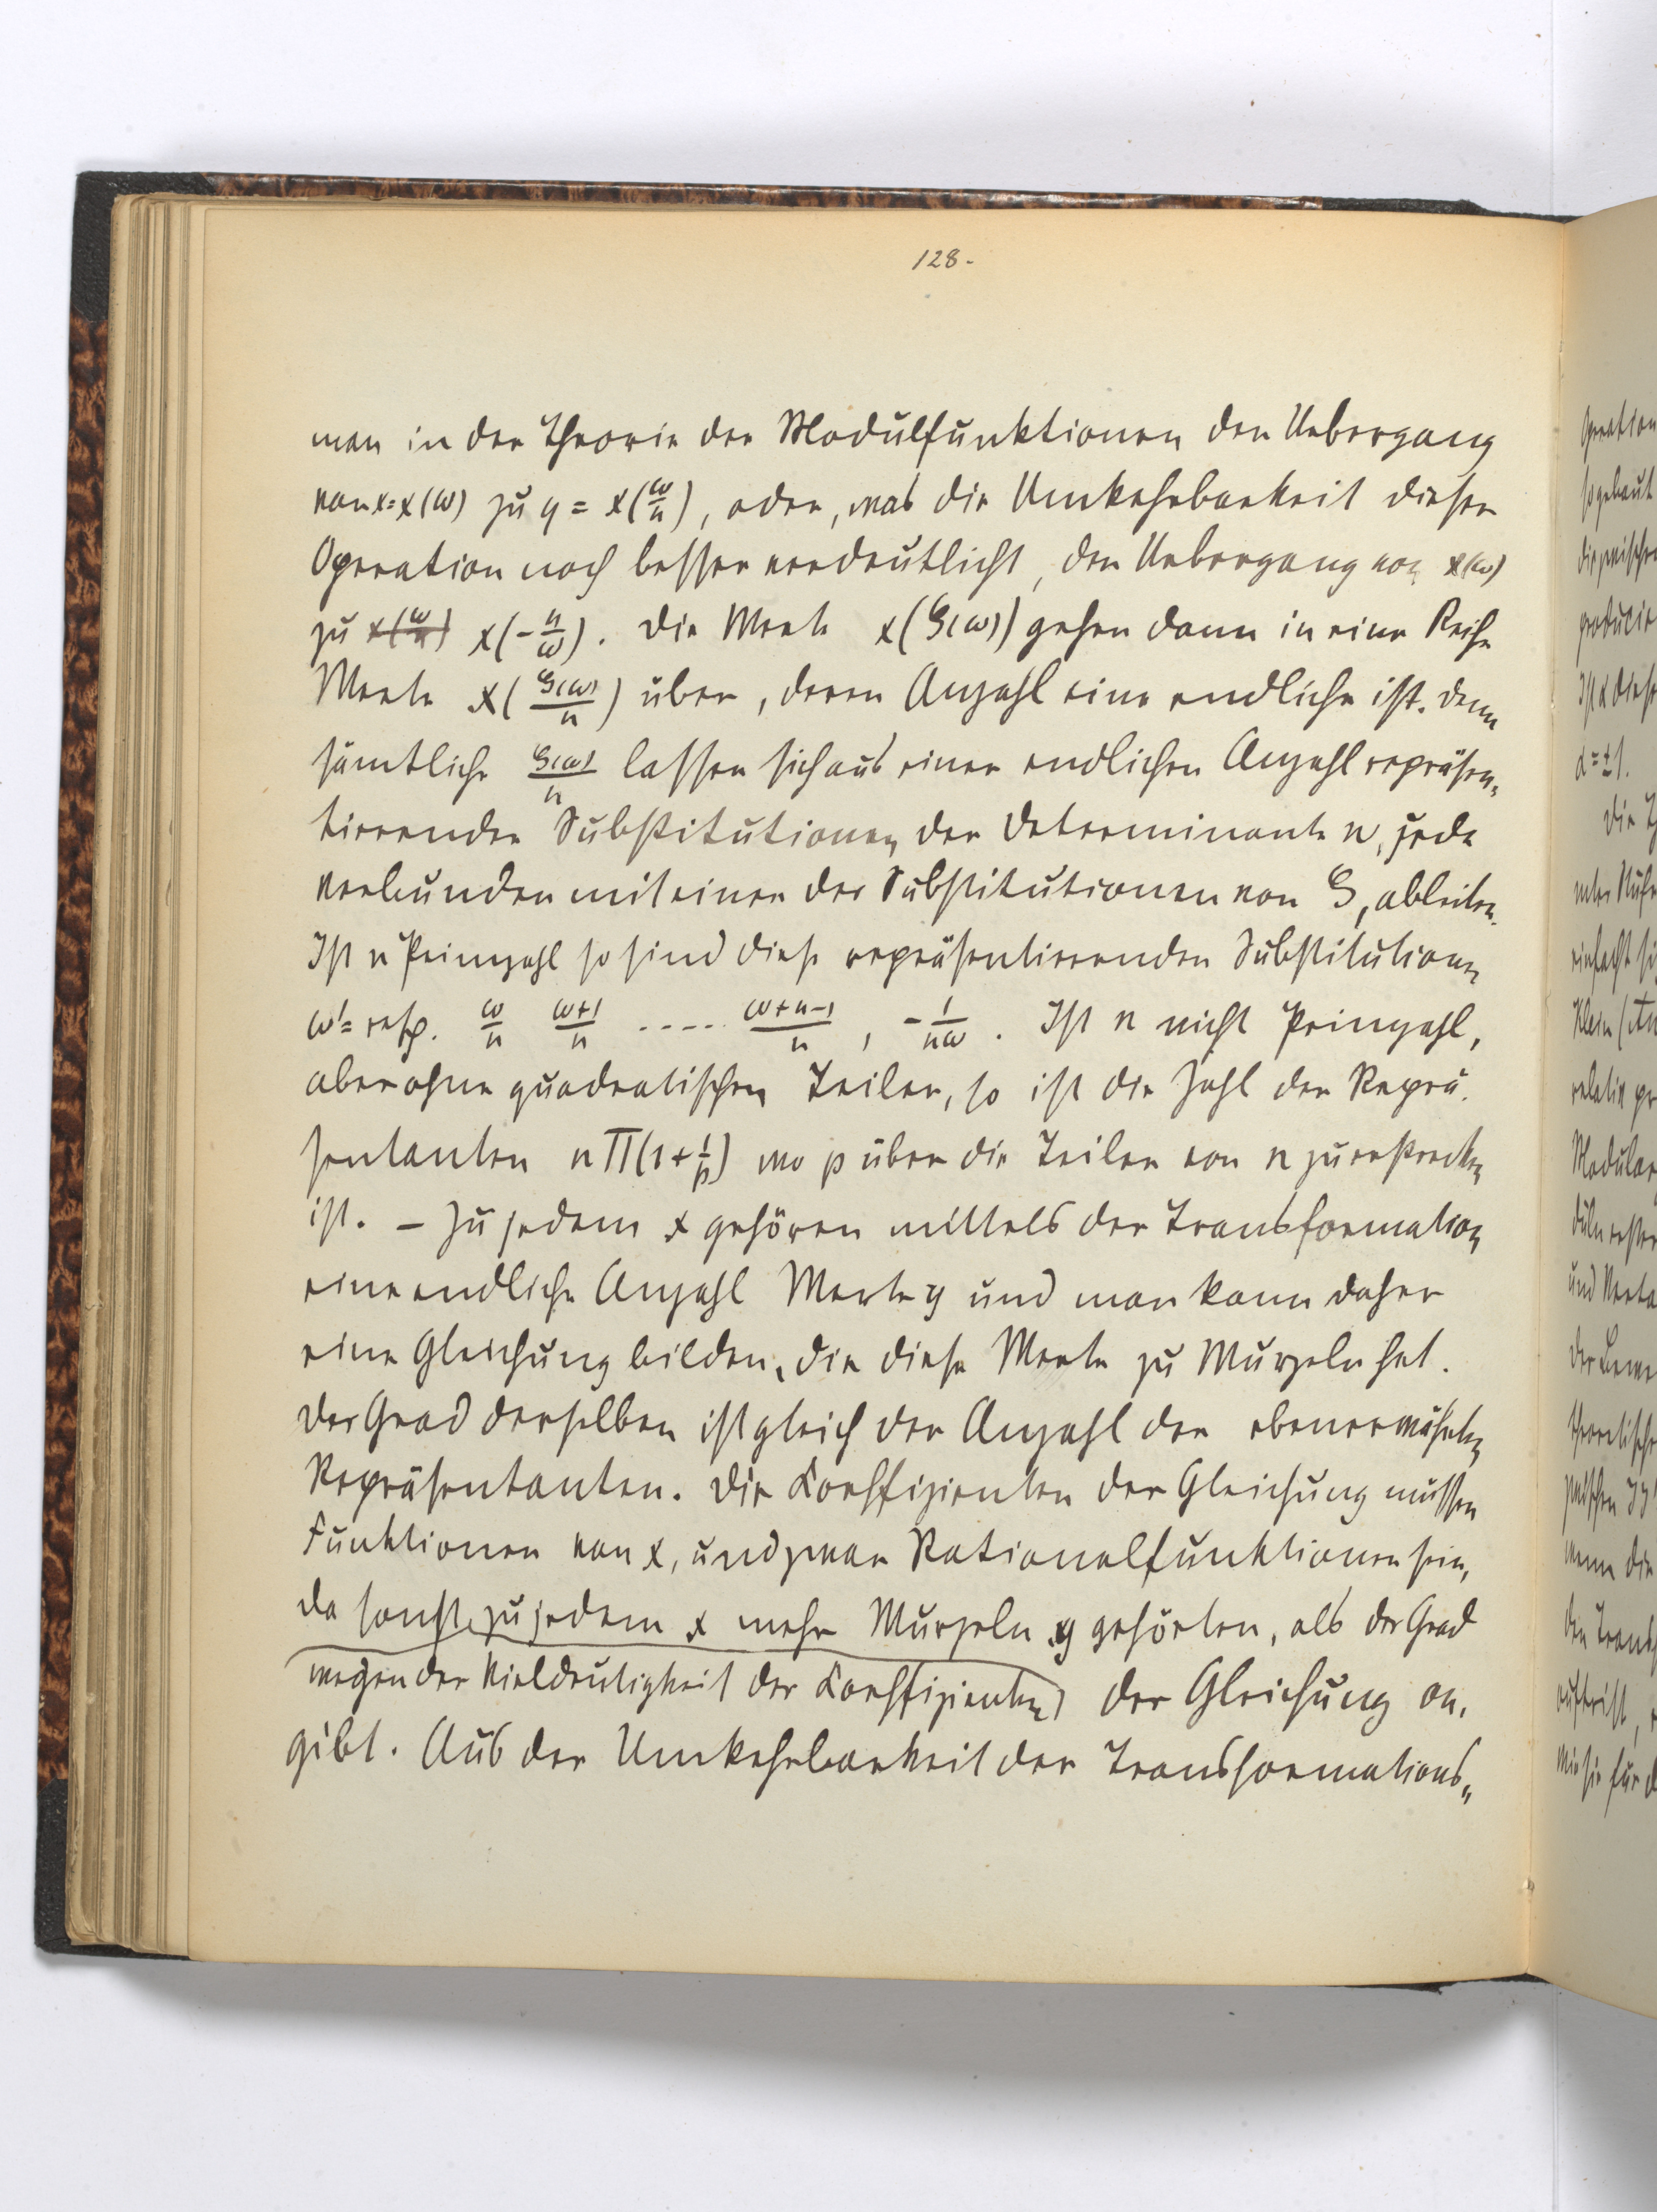 128.
man in der Theorie der Modulfunktionen den Uebergang
von x = x(ω) zu y = x(ω/n), oder, was die Umkehrbarkeit dieser
Operation noch besser verdeutlicht, den Uebergang von x(ω)
zu x(ω/n) x(-n/ω). Die Werte x(S(ω)) gehen dann in eine Reihe
Werte x(S(ω)/n) über, deren Anzahl eine endliche ist. Denn
sämtliche S(ω)/n lassen sich aus einer endlichen Anzahl repräsen-
tierender Substitutionen der Determinante n, jede
verbunden mit einer der Substitutionen von S, ableiten.
Ist n Primzahl so sind diese repräsentierenden Substitutionen
ω' = resp. ω/n (ω+1)/n ..... (ω+n-1)/n, -1/nω. Ist n nicht Primzahl,
aber ohne quadratischen Teiler, so ist die Zahl der Reprä-
sentanten nΠ(1+1/p) wo p über die Teiler von n zu erstrecken
ist. – Zu jedem x gehören mittels der Transformation
eine endliche Anzahl Werte y und man kann daher
eine Gleichung bilden, die diese Werte zu Wurzeln hat.
Der Grad derselben ist gleich der Anzahl der ebenerwähnten
Repräsentanten. Die Koeffizienten der Gleichung müssen
Funktionen von x, und zwar Rationalfunktionen sein,
da sonst zu jedem x mehr Wurzeln y gehörten, als der Grad
wegen der Vieldeutigkeit der Koeffizienten der Gleichung an-
gibt. Aus der Umkehrbarkeit der Transformations-
Operation
so gebaut
die zwischen
producie
Ist d diese
d = ±1.